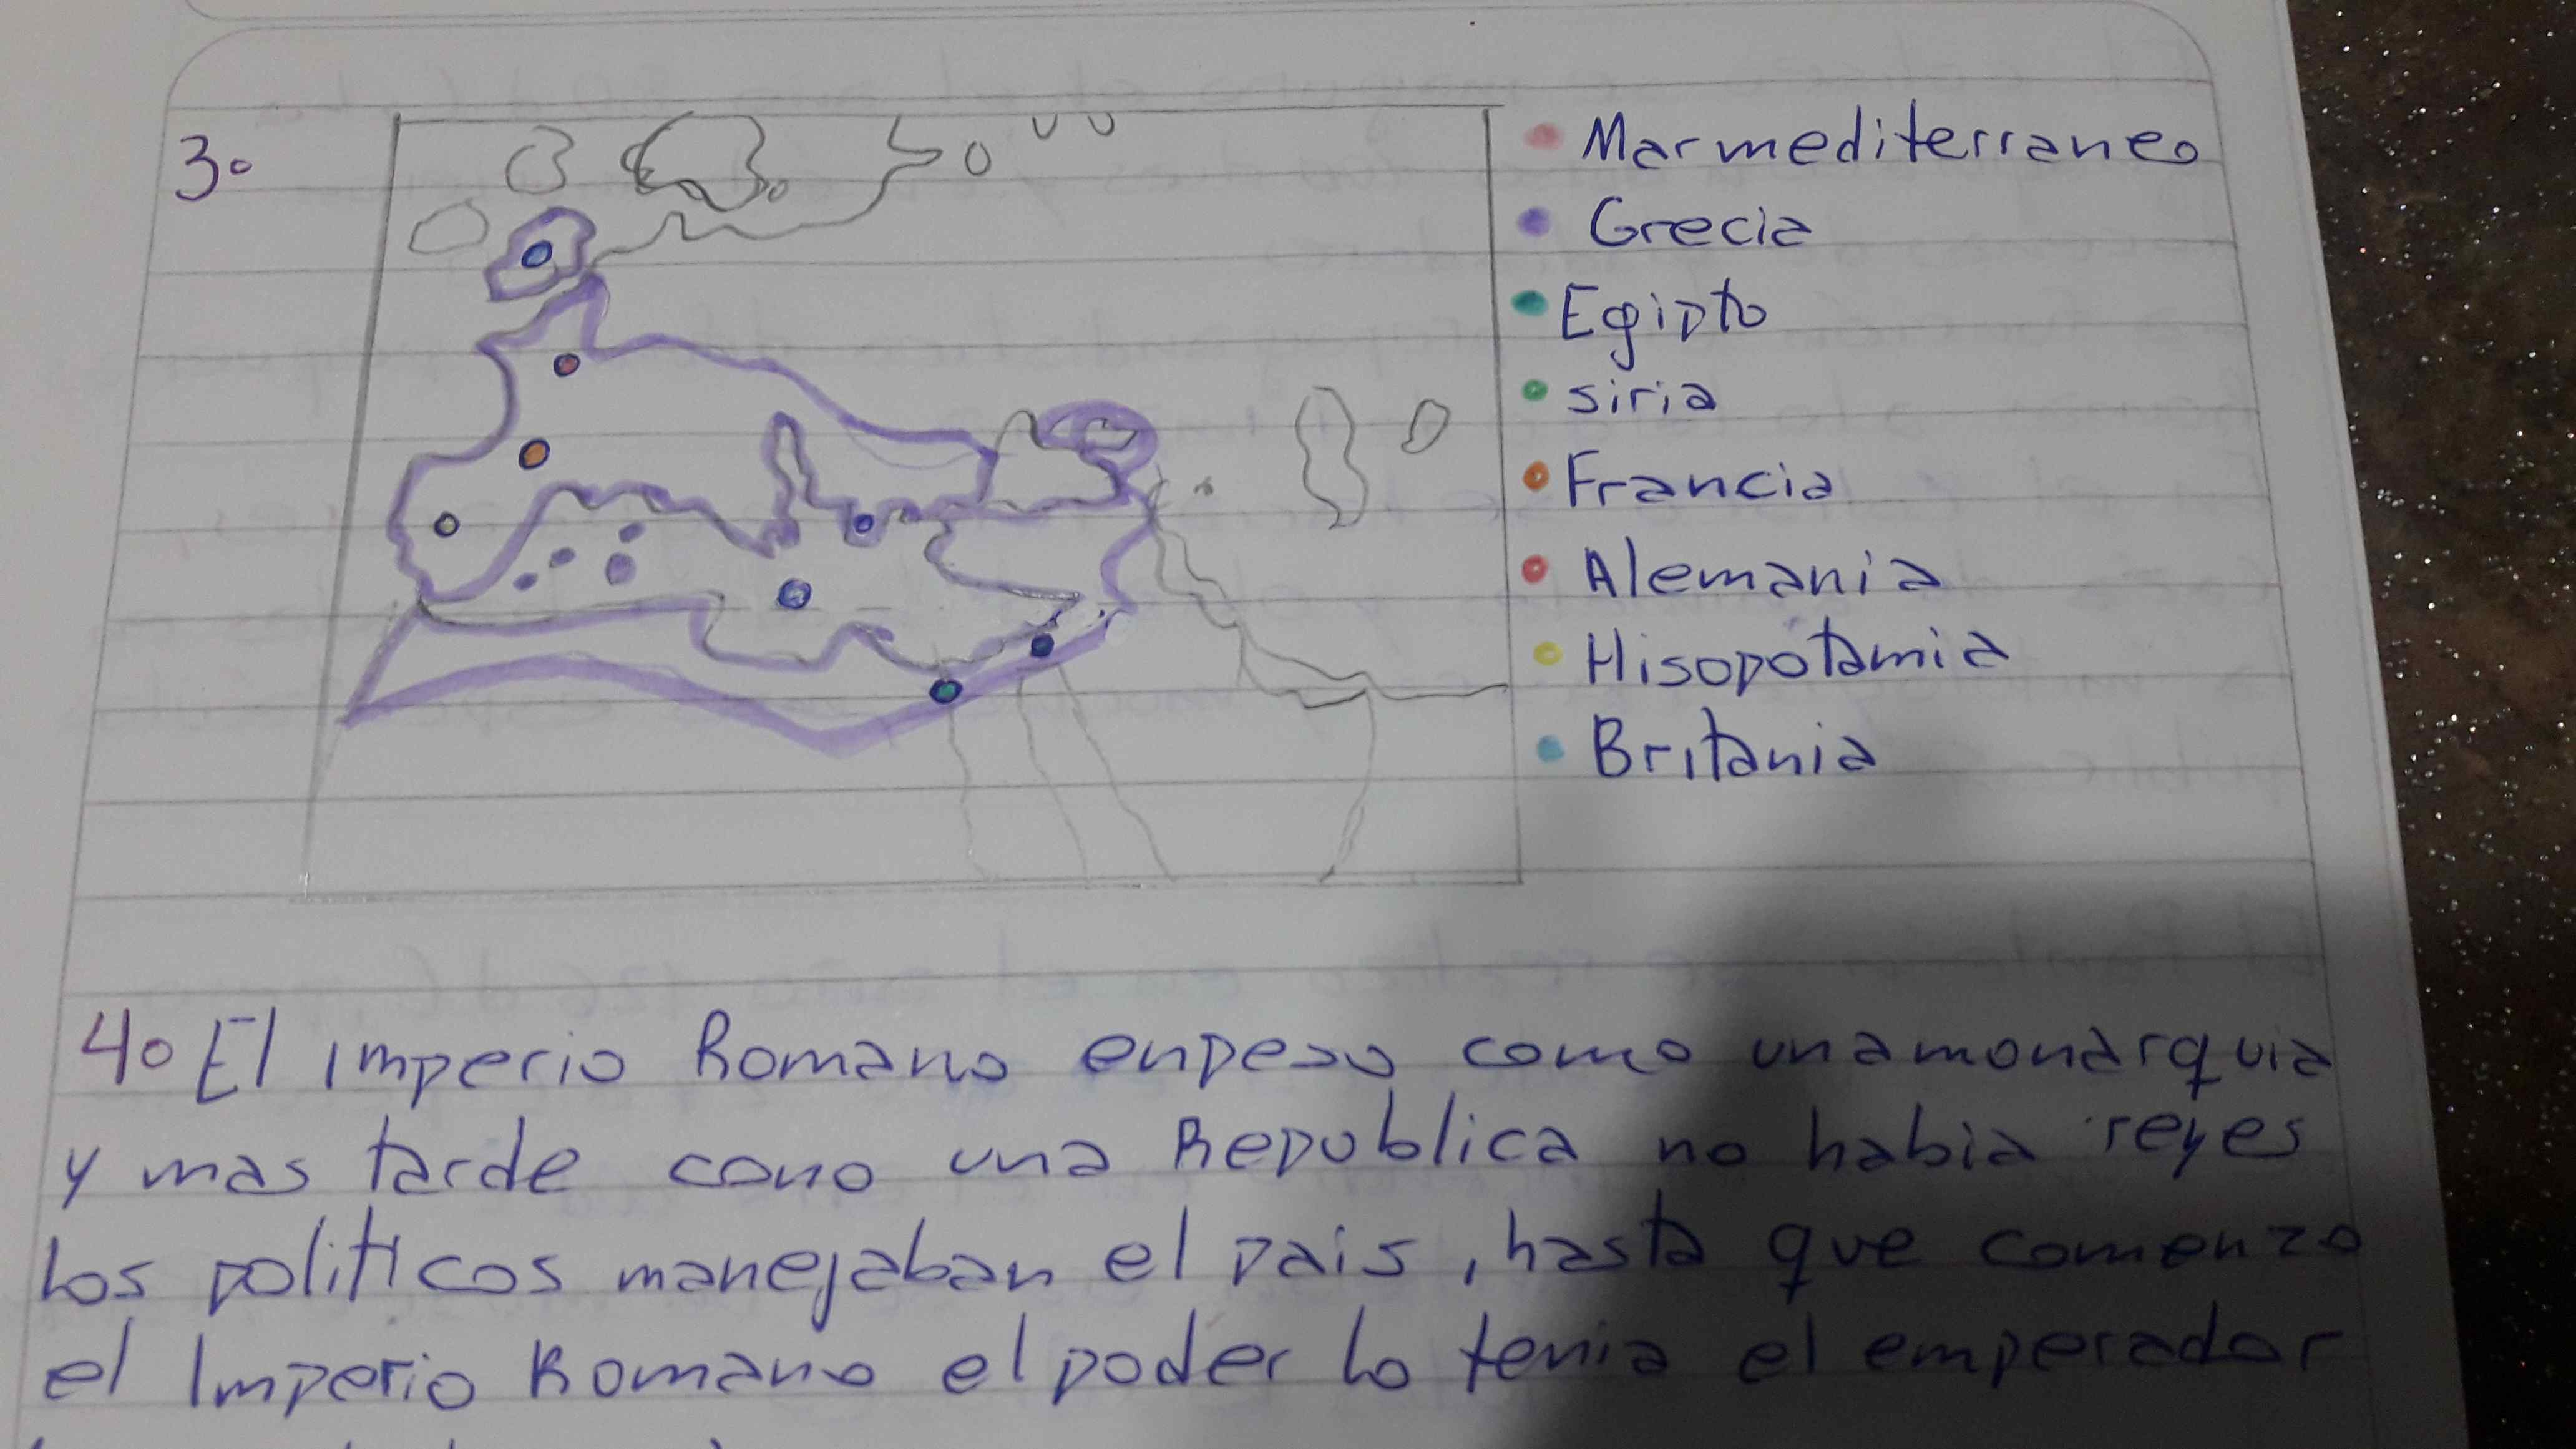 3.
Marmediterraneo
Grecia
Egipto
siria
Francia
Alemania
Hisopotamia
Britania
4. El imperio Romano enpeso como unamonarquia
y mas tarde como una Republica no habia reyes
los politicos manejaban el pais, hasta que comenzo
el Imperio Romano el poder lo tenia el emperador